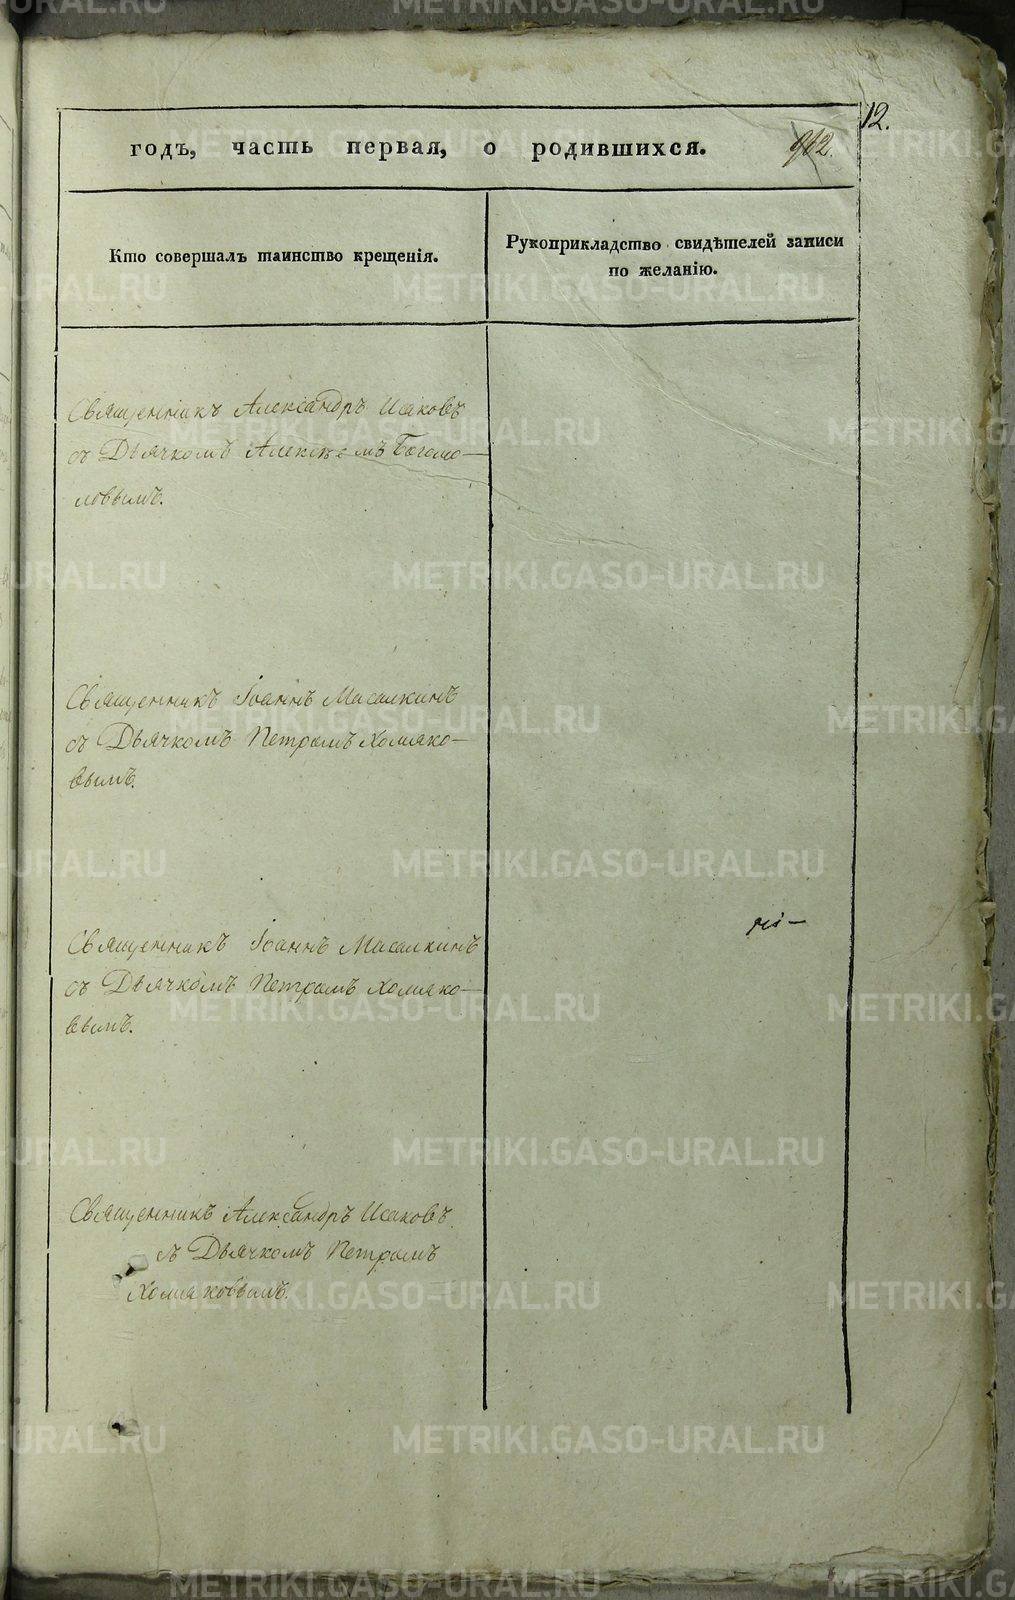 12.
годъ, часть первая, о родившихся. 962.
Кто совершалъ таинство крещенія.
Рукоприкладство свидѣтелей записи
по желанію.
Священникъ Александръ Исаковъ
съ Дьячкомъ Алексѣемъ Богомо-
ловымъ.
Священникъ Іоаннъ Масалкинъ
съ Дьячкомъ Петромъ Хомяко-
вымъ.
Священникъ Іоаннъ Масалкинъ
съ Дьячкомъ Петромъ Хомяко-
вымъ.
Священникъ Александръ Исаковъ
съ Дьячкомъ Петромъ
Хомяковымъ.
METRIKI.GASO-URAL.RU